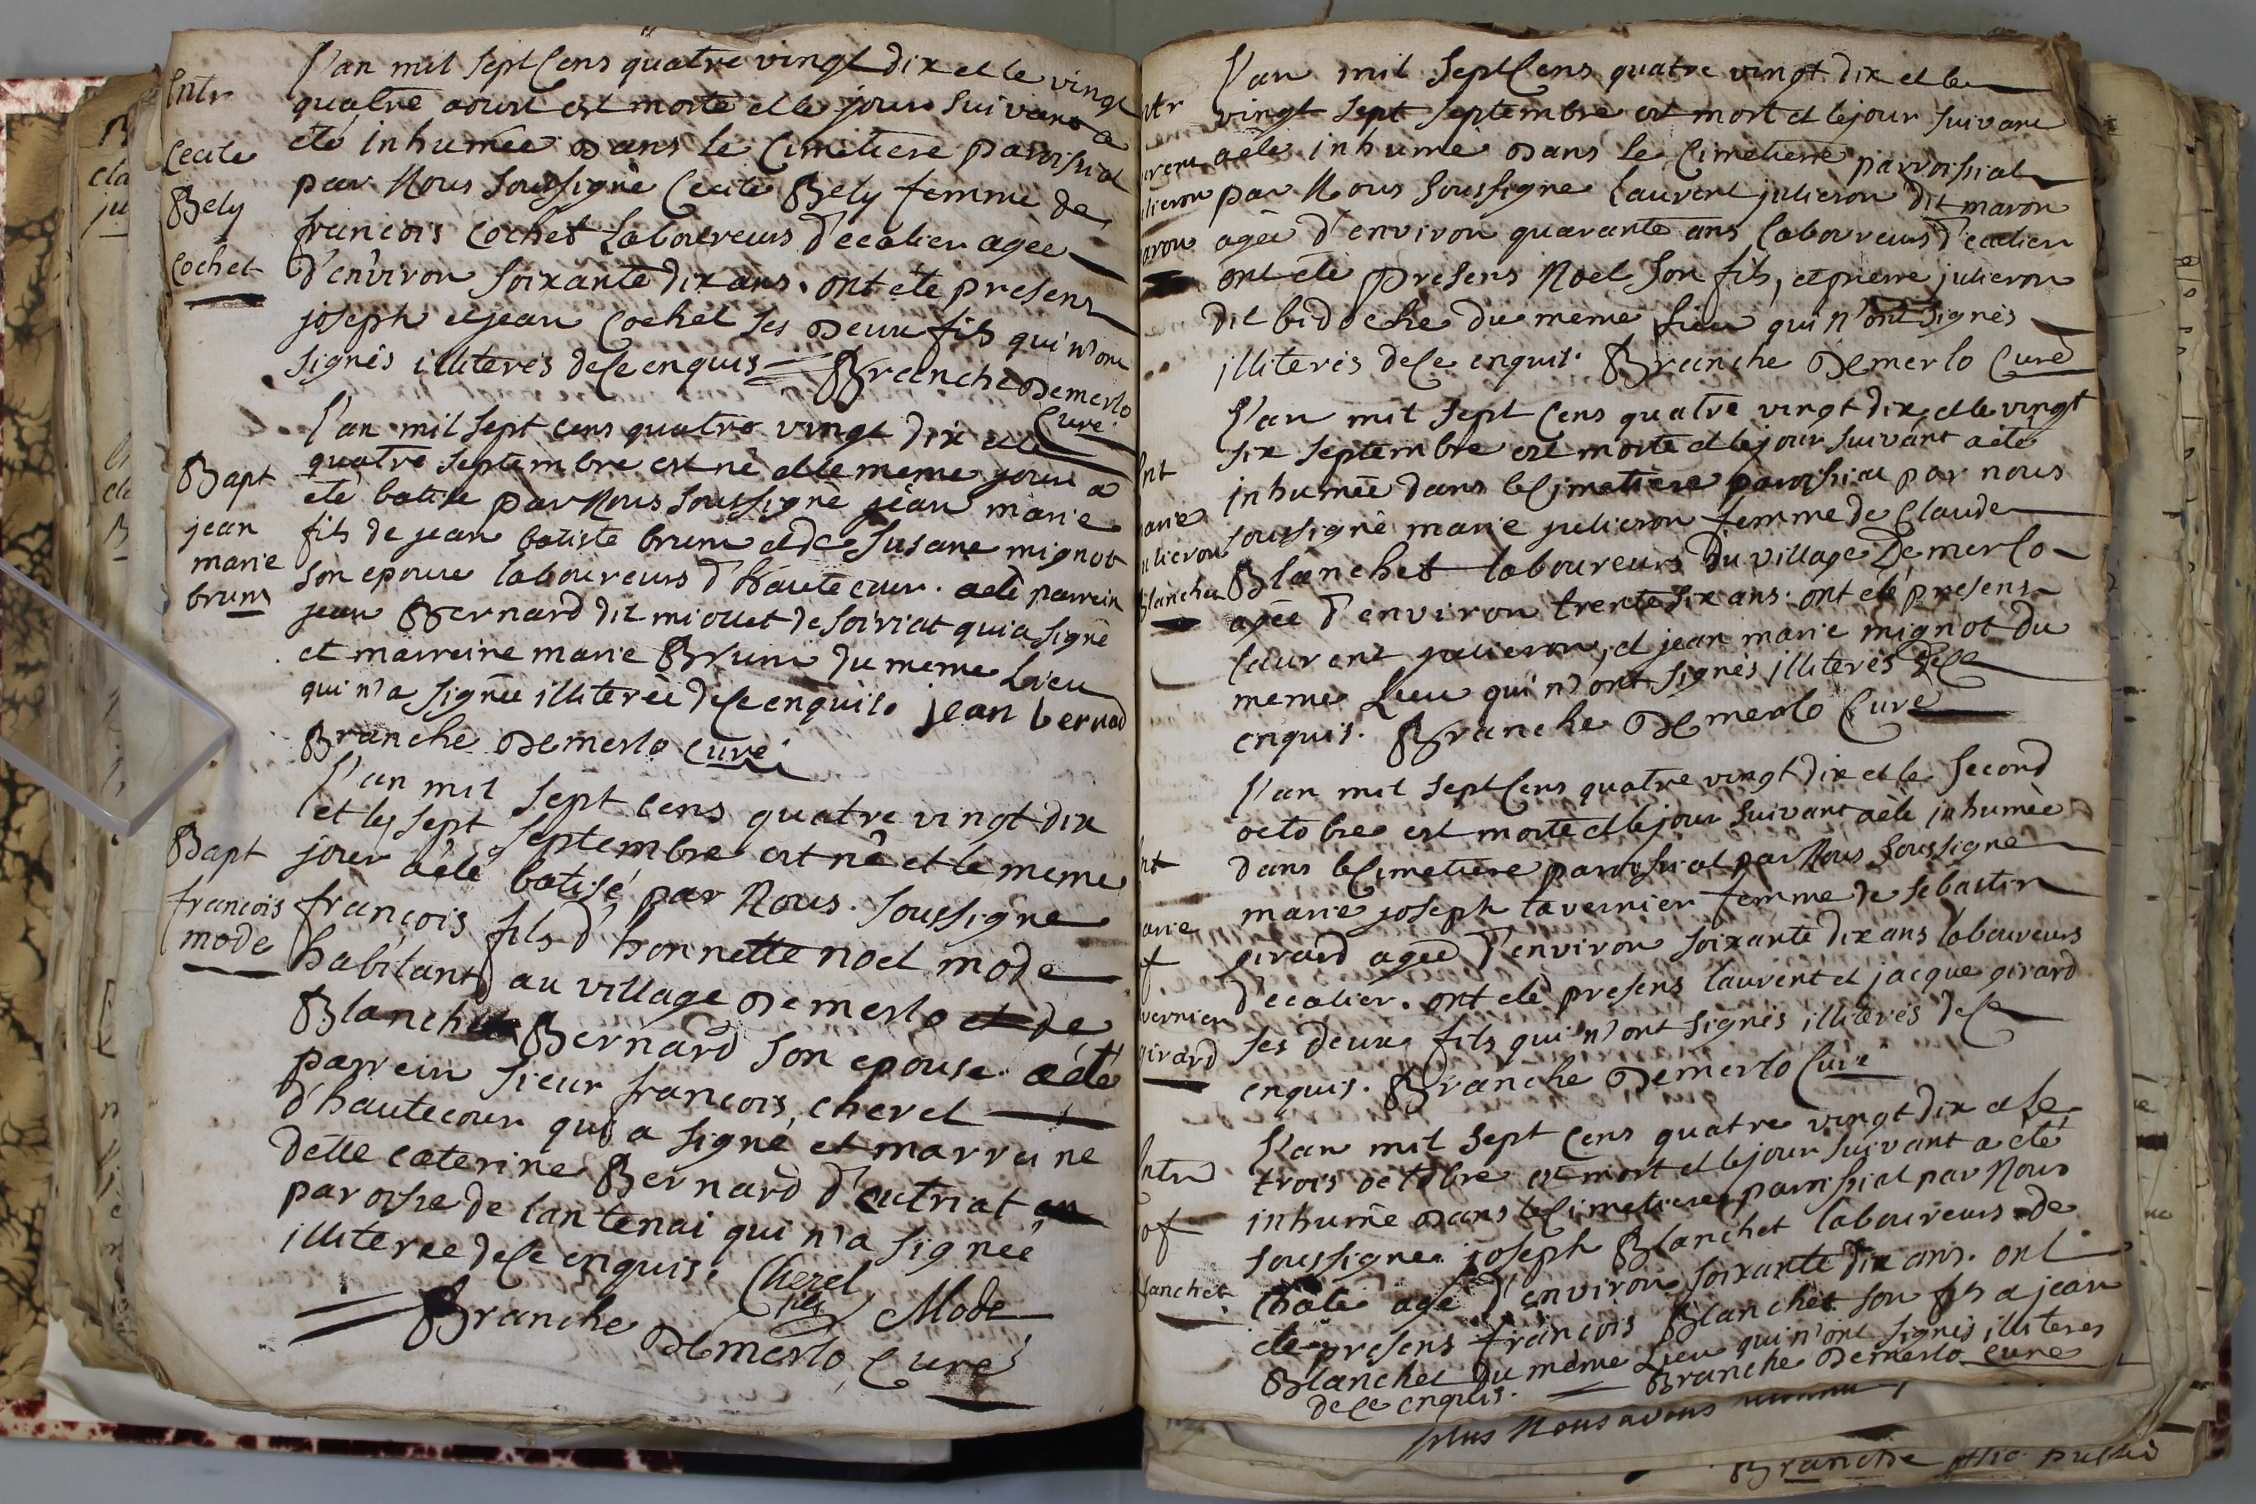 Entr
Cecile
Bely
Cochet
L'an mil sept Cens quatre vingt dix et le vingt
quatre aoust est morte et le jour suivant a
eté inhumée dans le Cimetiere paroissial
par Nous soussigné Cecile Bely femme de
francois Cochet Laboureurs d'ecalier agée
d'environ soixante dix ans. ont eté presens
joseph et jean Cochet ses deux fils qui n'ont
signés illiterés de Ce enquis Branche Demerlo
Curé
Bapt
jean
marie
brum
L'an mil sept cens quatre vingt dix et le
quatre septembre est né et le meme jour a
eté batisé par Nous soussigné jean marie
fils de jean batiste brum et de Susane mignot
son epouse laboureurs d'hautecour. a eté parrein
jean Bernard dit miollet de soiriat qui a signé
et marreine marie Brum du meme Lieu
qui n'a signée illiterée de Ce enquise jean bernard
Branche Demerlo Curé
Bapt
francois
mode
L'an mil sept cens quatre vingt dix
et le sept septembre est né et le meme
jour a eté batisé par Nous soussigné
françois fils d'honnette noel mode
habitant au village Demerlo et de
Blanche Bernard son epouse a eté
parrein sieur francois cherel
d'hautecour qui a signé et marreine
dette caterine Bernard d'outriat
paroisse de lantenai qui n'a signée
illiterée de Ce enquise
Cherel Mode
Branche
Demerlo Curé
ntr
urent
licron
aron
L'an mil sept Cens quatre vingt dix et le
vingt sept septembre est mort et le jour suivant
a eté inhumé dans le Cimetiere parroissial
par Nous soussigné Laurent julieron dit maron
agée d'environ quarante ans Laboureurs d'ecalier
ont eté presens Noel son fils, et pierre julieron
dit bidoche du meme lieu qui n'ont signés
illiterés de Ce enquis. Branche Demerlo Curé
Ent
marie
ulieron
Blanchet
L'an mil sept Cens quatre vingt dix et le vingt
six septembre est morte et le jour suivant a eté
inhumée dans le Cimetiere paroissial par nous
soussigné marie julieron femme de Claude
Blanchet laboureurs du village Demerlo
agée d'environ trente six ans. ont eté presens
laurent julieron, et jean marie mignot du
meme Lieu qui n'ont signés illiterés de Ce
enquis. Branche Demerlo Curé
nt
arie
f
vernier
girard
L'an mil sept Cens quatre vingt dix et le second
octobre est morte et le jour suivant a eté inhumée
dans le Cimetiere paroissial par Nous soussigné
marie joseph tavernier femme de sebastin
girard agée d'environ soixante dix ans laboureurs
d'ecalier. ont eté presens laurent et jacque girard
ses deux fils qui n'ont signés illiterés de Ce
enquis. Branche Demerlo Curé
Entr
of
lanchet
L'an mil sept Cens quatre vingt dix et le
trois octobre est mort et le jour suivant a eté
inhumé dans le Cimetiere paroissial par Nous
soussigné joseph Blanchet laboureurs de
Chale agé d'environ soixante dix ans. ont
eté presens françois Blanchet son fils et jean
Blanchet du même Lieu qui n'ont signés illiteres
de Ce enquis. Branche Demerlo Curé
plus Nous avons
Branche